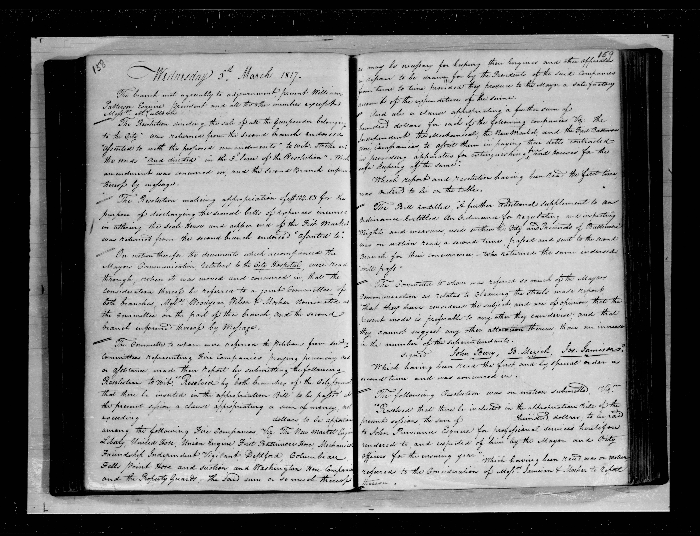 158
Wednesday 5th March 1817.
The branch met agreeably to adjournment present William
Patterson Esquire President and all the other members except
Messrs McCulloch
The Resolution directing the sale of all the Gunpowder belonging
to the City was returned from the second branch endorsed
"assented to with the proposed amendments" to wit. strike out
the words "and divided" in the 3d line of the Resolution. Which
amendment was concurred in, and the Second Branch informed
thereof by message.
The Resolution making appropriation of for the
purpose of discharging the several bills of expences incurred
in altering the Scale House and upper end of the Fish Market
was returned from the second branch endorsed "assented to".
On motion the documents which accompanied the
Mayors Communication relative to the City Hospital were read
through, when it was moved and concurred in that the
consideration thereof be referred to a joint Committee of
both branches, Messrs Mosher nominated as
the Committee on the part of this branch and the second
branch informed thereof by Message.
The Committee to whom were referred the Petitions from sundry
Committees representing Fire Companies praying pecuniary aid
or assistance made their report by submitting the following
Resolution to wit. Resolved by both branches of the City Council
that there be inserted in the appropriation Bill to be passed at
the present session a clause appropriating a sum of money not
exceeding dollars to be apportioned
among the following Fire Companies Viz. The New Market
Liberty United Hose, Union Engine First Baltimore Hose Mechanical
Friendship Independent Vigilant Deptford Columbian
Falls, Point Hose and suction and Washington Companies
and the Property Guards, the said sum or so much thereof
159
as may be necessary for keeping their Engines and other apparatus
in repair to be drawn for by the Presidents of the said Companies
from time to time provided they produce to the Mayor a satisfactory
account of the expenditures of the same.
And also a clause appropriating a further sum of
hundred dollars for each of the following companies Viz the
Independent the Mechanical, the New Market and the First Baltimore
Hose companies to assist them in paying their debts contracted
in procuring apparatus for extinguishing of and houses for the
safe keeping of the same.
Which report and resolution having been read the first time
was ordered to lie on the table.
The Bill entitled A further additional supplement to an
Ordinance entitled An Ordinance for regulating and inspecting
Weights and measures used within the City and Precincts of Baltimore
was on motion read a second time passed and sent to the second
Branch for their concurrence. Who returned the same endorsed
"will pass".
The Committee to whom was referred so much of the Mayors
Communication as relates to cleaning the streets made report
that they have considered the subject and are of opinion that the
present mode is preferable to any other they can devise and that
they cannot suggest any other alteration therein than an increase
in the number of the superintendants.
Signed John Berry, Jas. Jameson
Which having been read the first and by special order a
second time and was concurred in.
The following Resolution was on motion submitted Viz.
Resolved that there be inserted in the appropriation Bill of the
present session the sum of hundred dollars to be paid
to John Purviance Esquire for professional services heretofore
rendered to and expected of him by the Mayor and City
officers for the ensuing year. Which having been read was on motion
referred to the Consideration of Messrs Jameson & Mosher to report
thereon.